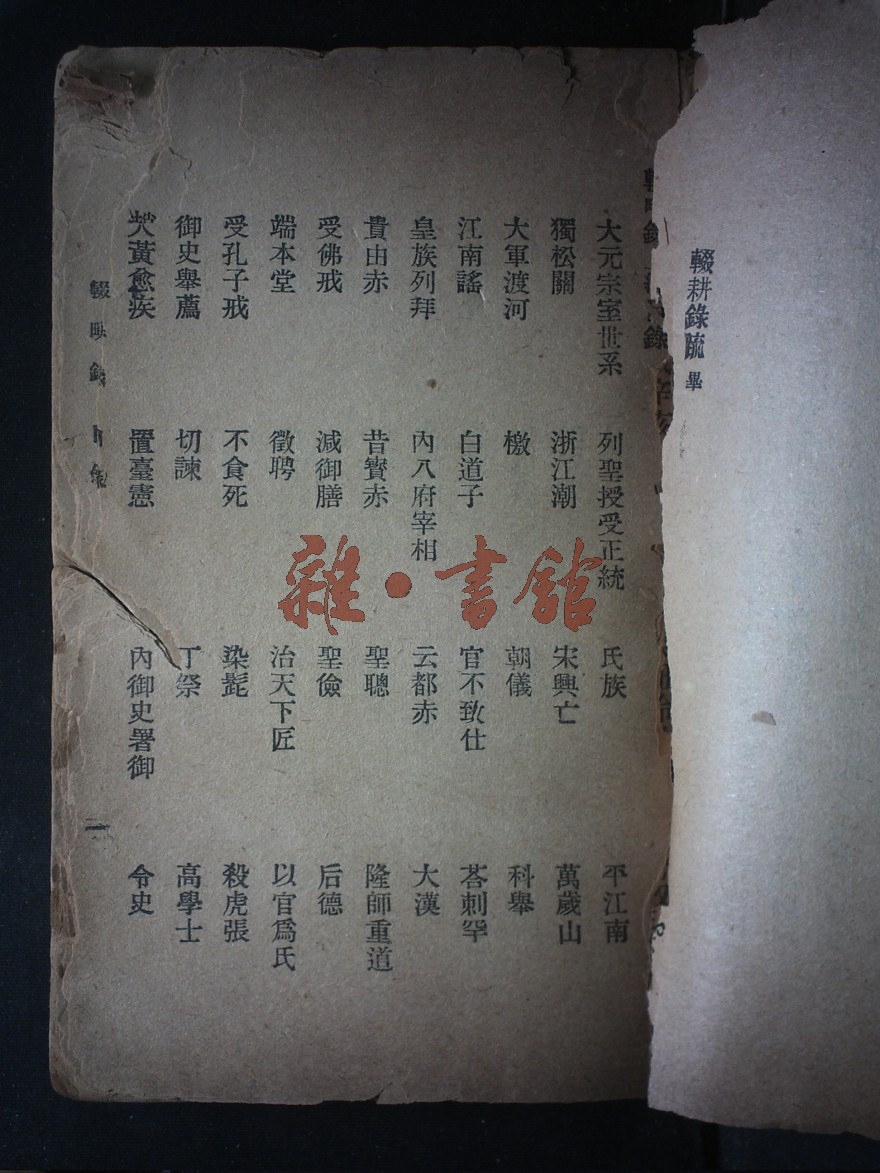 輟耕錄疏 畢
大元宗室世系 列聖授受正統 氏族 平江南
獨松關 浙江潮 宋興亡 萬歲山
大軍渡河 檄 朝儀 科舉
江南謠 白道子 官不致仕 荅刺罕
皇族列拜 內八府宰相 云都赤 大漢
貴由赤 昔寶赤 聖聰 隆師重道
受佛戒 減御膳 聖儉 后德
端本堂 徵聘 治天下匠 以官爲氏
受孔子戒 不食死 染髭 殺虎張
御史舉薦 切諫 丁祭 高學士
焚黃愈疾 置臺憲 內御史署御 令史
輟耕錄 目錄 一
雜·書館